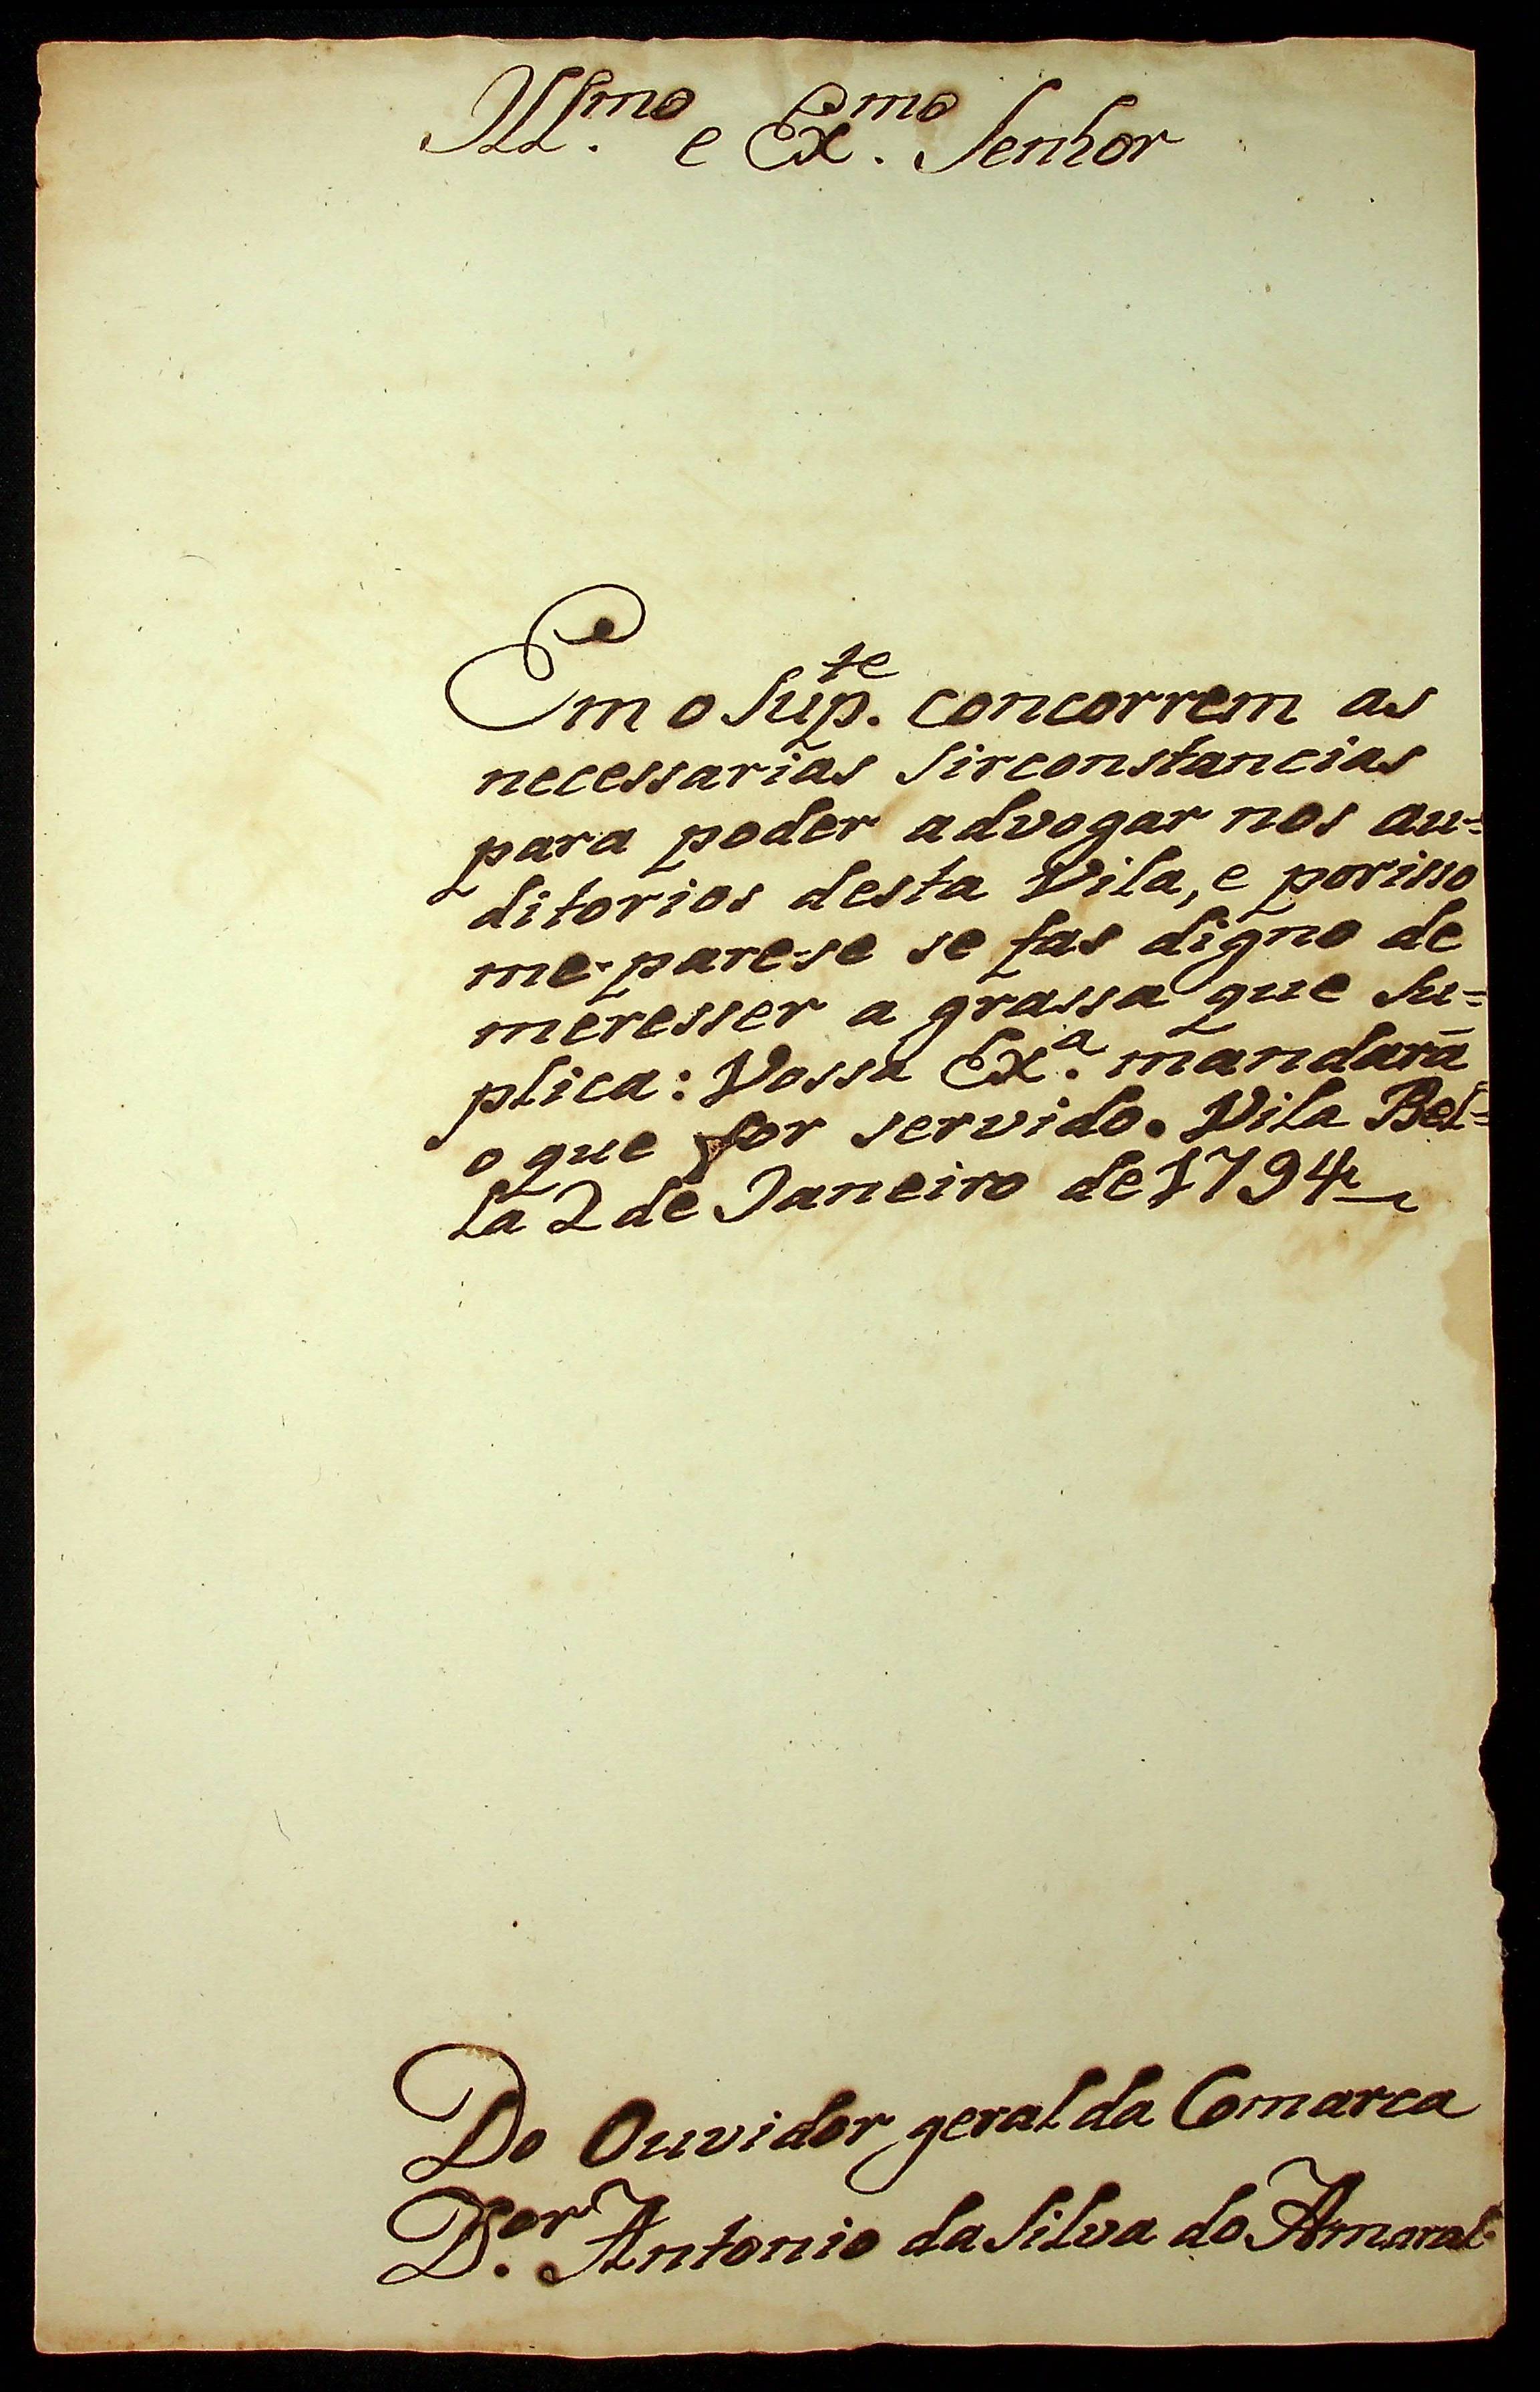 Ill.mo e Ex.mo Senhor
Em o Sup.te concorrem as
necessarias sirconstancias
para poder advogar nos au=
ditorios desta Vila, e porisso
me-parese se fas digno de
meresser a grassa que su=
plica: Vossa Ex.a mandarà
o que for servido. Vila Bel=
la 2 de Janeiro de 1794
Do Ouvidor geral da Comarca
D.or Antonio da Silva do Amaral